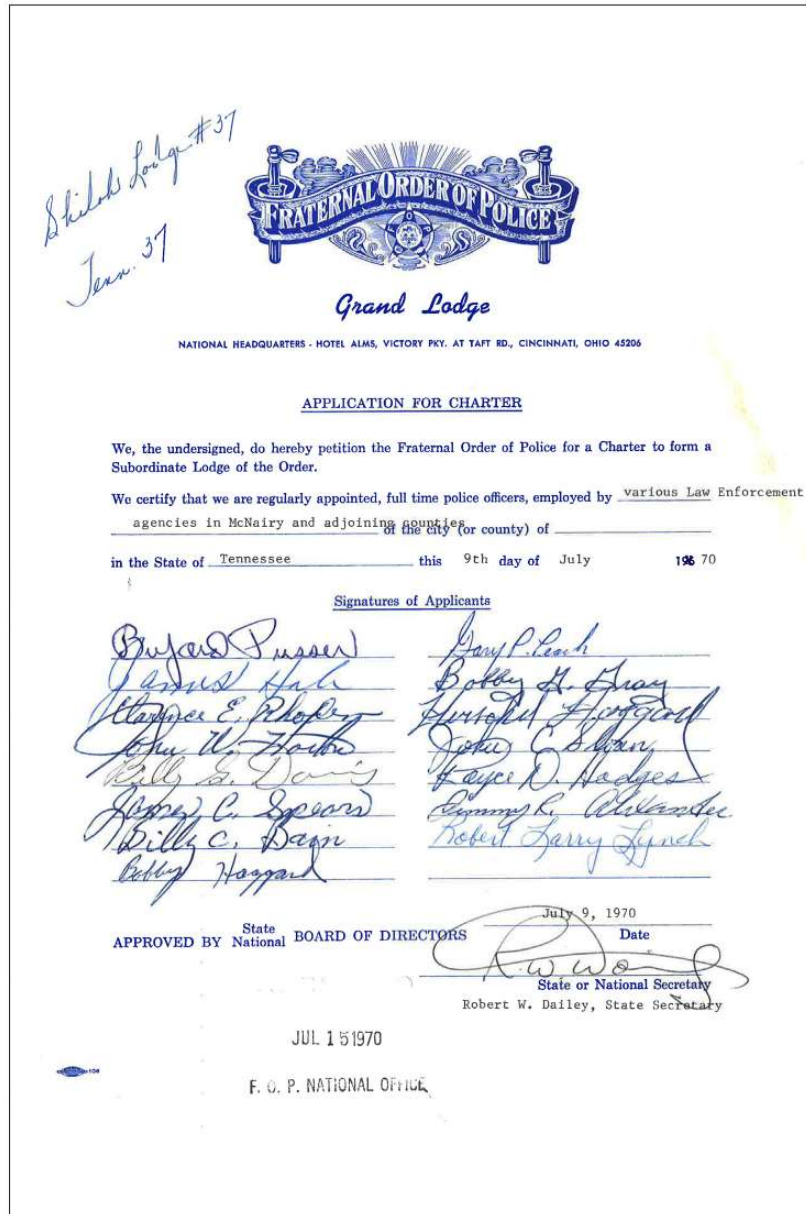 Shiloh Lodge #37
Tenn. 37
FRATERNAL ORDER OF POLICE
Grand Lodge
NATIONAL HEADQUARTERS - HOTEL ALMS, VICTORY PKY. AT TAFT RD., CINCINNATI, OHIO 45206
APPLICATION FOR CHARTER
We, the undersigned, do hereby petition the Fraternal Order of Police for a Charter to form a
Subordinate Lodge of the Order.
We certify that we are regularly appointed, full time police officers, employed by various Law Enforcement
agencies in McNairy and adjoining counties of the city (or county) of
in the State of Tennessee this 9th day of July 1970
Signatures of Applicants
Buford Pusser Gary P. Leach
James Bobby G. Gray
Clarence E. Hershel Haggard
John W. John C. Sloan
Billy G. Davis Royce D. Hodges
James C. Spears Jimmy R. Alexander
Billy C. Bain Robert Larry Lynch
Bobby Haggard
July 9, 1970
APPROVED BY State National BOARD OF DIRECTORS Date
State or National Secretary
Robert W. Dailey, State Secretary
JUL 15 1970
F. O. P. NATIONAL OFFICE